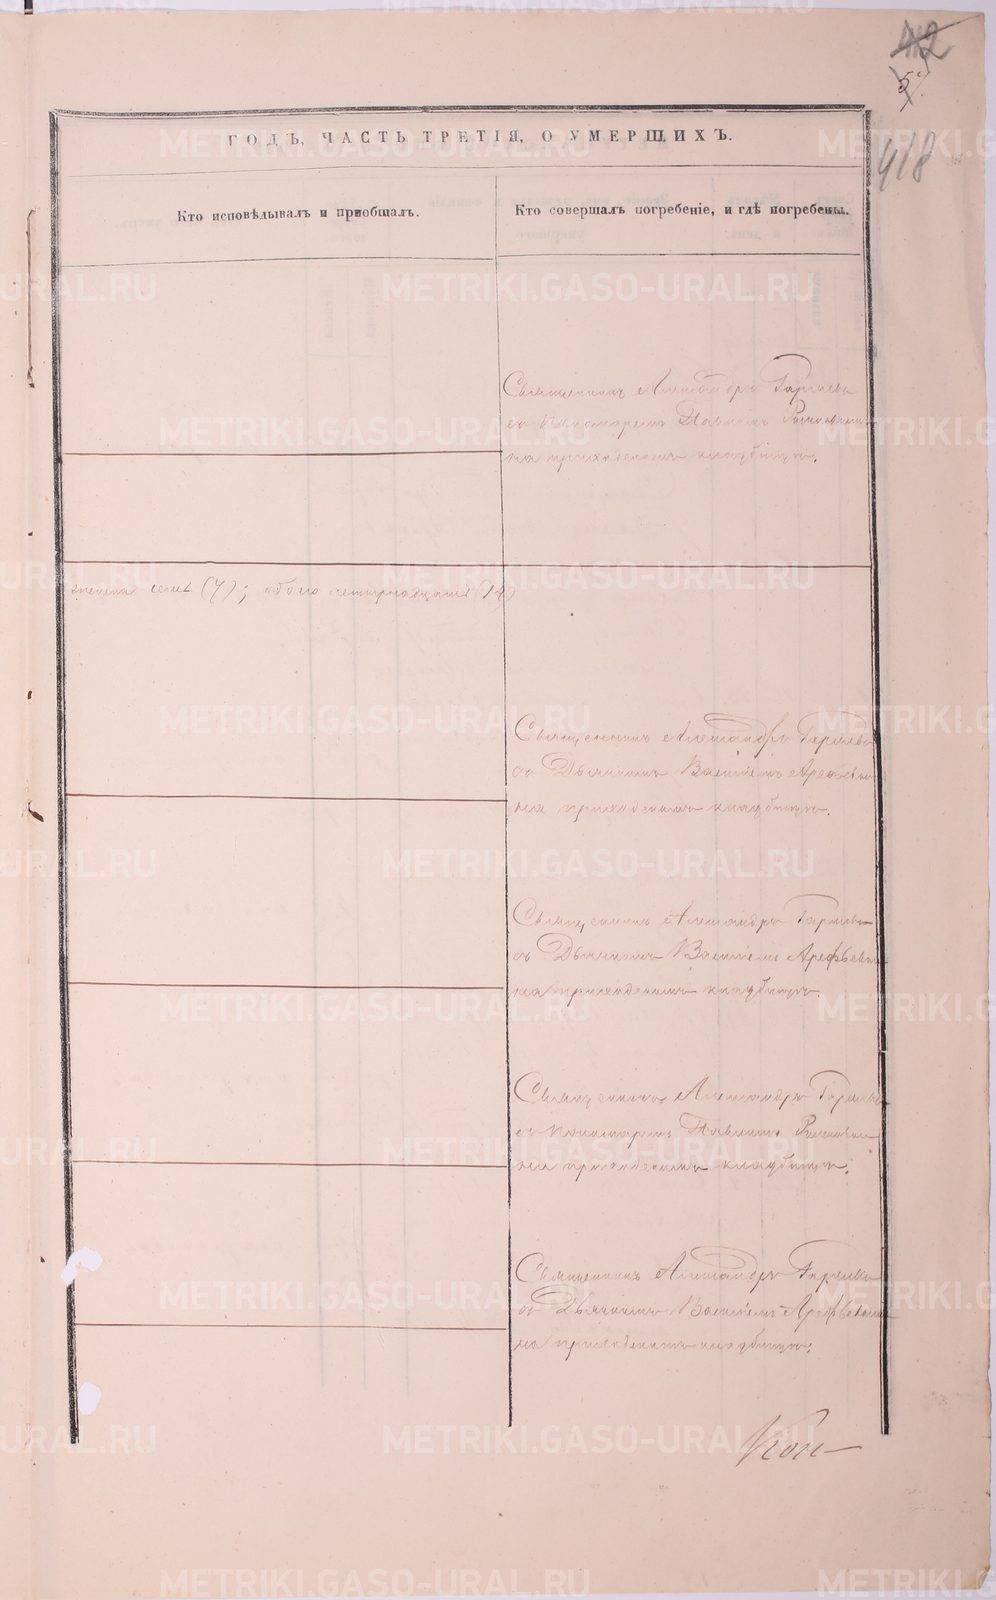 412
5
418
ГОДЪ, ЧАСТЬ ТРЕТІЯ, О УМЕРШИХЪ.
Кто исповѣдывалъ и пріобщалъ.
Кто совершалъ погребеніе, и гдѣ погребены.
Священникъ Александръ Гаряевъ
съ Пономаремъ Павломъ
на приходскомъ кладбищѣ.
семь (7); обоего четырнадцать (14)
Священникъ Александръ Гаряевъ
съ Дьячкомъ Василіемъ Арефьевымъ
на приходскомъ кладбищѣ.
Священникъ Александръ Гаряевъ
съ Дьячкомъ Василіемъ Арефьевымъ
на приходскомъ кладбищѣ.
Священникъ Александръ Гаряевъ
съ Пономаремъ Павломъ
на приходскомъ кладбищѣ.
Священникъ Александръ Гаряевъ
съ Дьячкомъ Василіемъ Арефьевымъ
на приходскомъ кладбищѣ.
METRIKI.GASO-URAL.RU